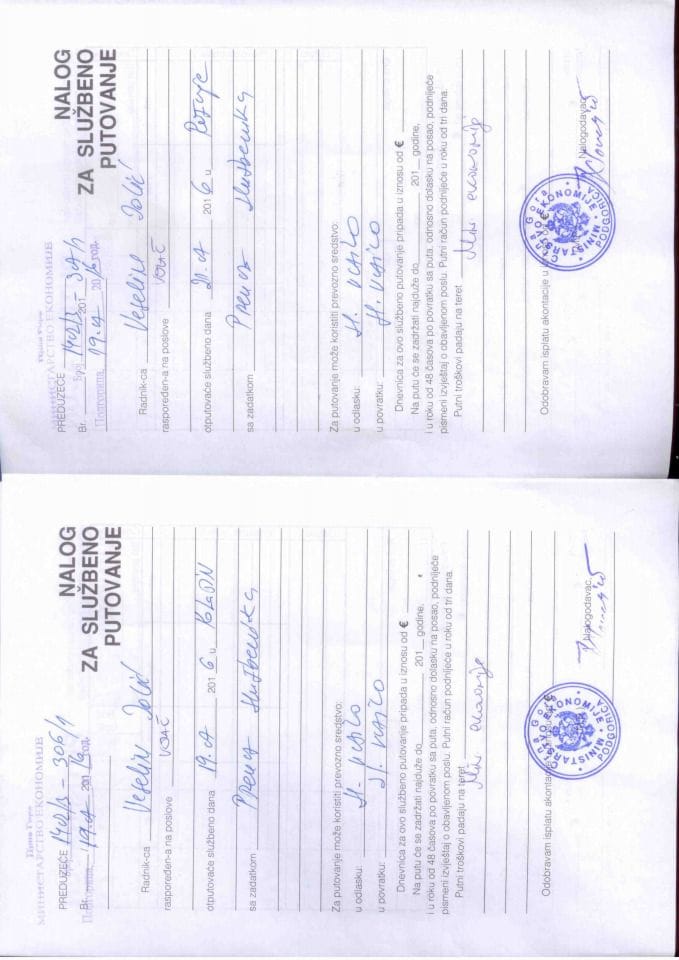 Црна Гора
МИНИСТАРСТВО ЕКОНОМИЈЕ
PREDUZEĆE 1402/3 - 307/1
Br. 201
Подгорица, 19.07 2016 год.
NALOG
ZA SLUŽBENO
PUTOVANJE
Radnik-ca Veselin Jolić
raspoređen-a na poslove VOZAČ
otputovaće službeno dana 21.07 2016 u
sa zadatkom Prevoz službenika
Za putovanje može koristiti prevozno sredstvo:
u odlasku: Sl. vozilo
u povratku: Sl. vozilo
Dnevnica za ovo službeno putovanje pripada u iznosu od €
Na putu će se zadržati najduže do 201 godine,
i u roku od 48 časova po povratku sa puta, odnosno dolasku na posao, podnijeće
pismeni izvještaj o obavljenom poslu. Putni račun podnijeće u roku od tri dana.
Putni troškovi padaju na teret Min ekonomije
Odobravam isplatu akontacije u
Nalogodavac,
Црна Гора
MINISTARSTVO EKONOMIJE
PODGORICA
Црна Гора
МИНИСТАРСТВО ЕКОНОМИЈЕ
PREDUZEĆE 1402/3 - 306/1
Br. 201
Подгорица, 19.07 2016 год.
NALOG
ZA SLUŽBENO
PUTOVANJE
Radnik-ca Veselin Jolić
raspoređen-a na poslove VOZAČ
otputovaće službeno dana 19.07 2016 u
sa zadatkom Prevoz službenika
Za putovanje može koristiti prevozno sredstvo:
u odlasku: Sl. vozilo
u povratku: Sl. vozilo
Dnevnica za ovo službeno putovanje pripada u iznosu od €
Na putu će se zadržati najduže do 201 godine,
i u roku od 48 časova po povratku sa puta, odnosno dolasku na posao, podnijeće
pismeni izvještaj o obavljenom poslu. Putni račun podnijeće u roku od tri dana.
Putni troškovi padaju na teret Min ekonomije
Odobravam isplatu akontacije u iznosu €
Nalogodavac,
Црна Гора
MINISTARSTVO EKONOMIJE
PODGORICA